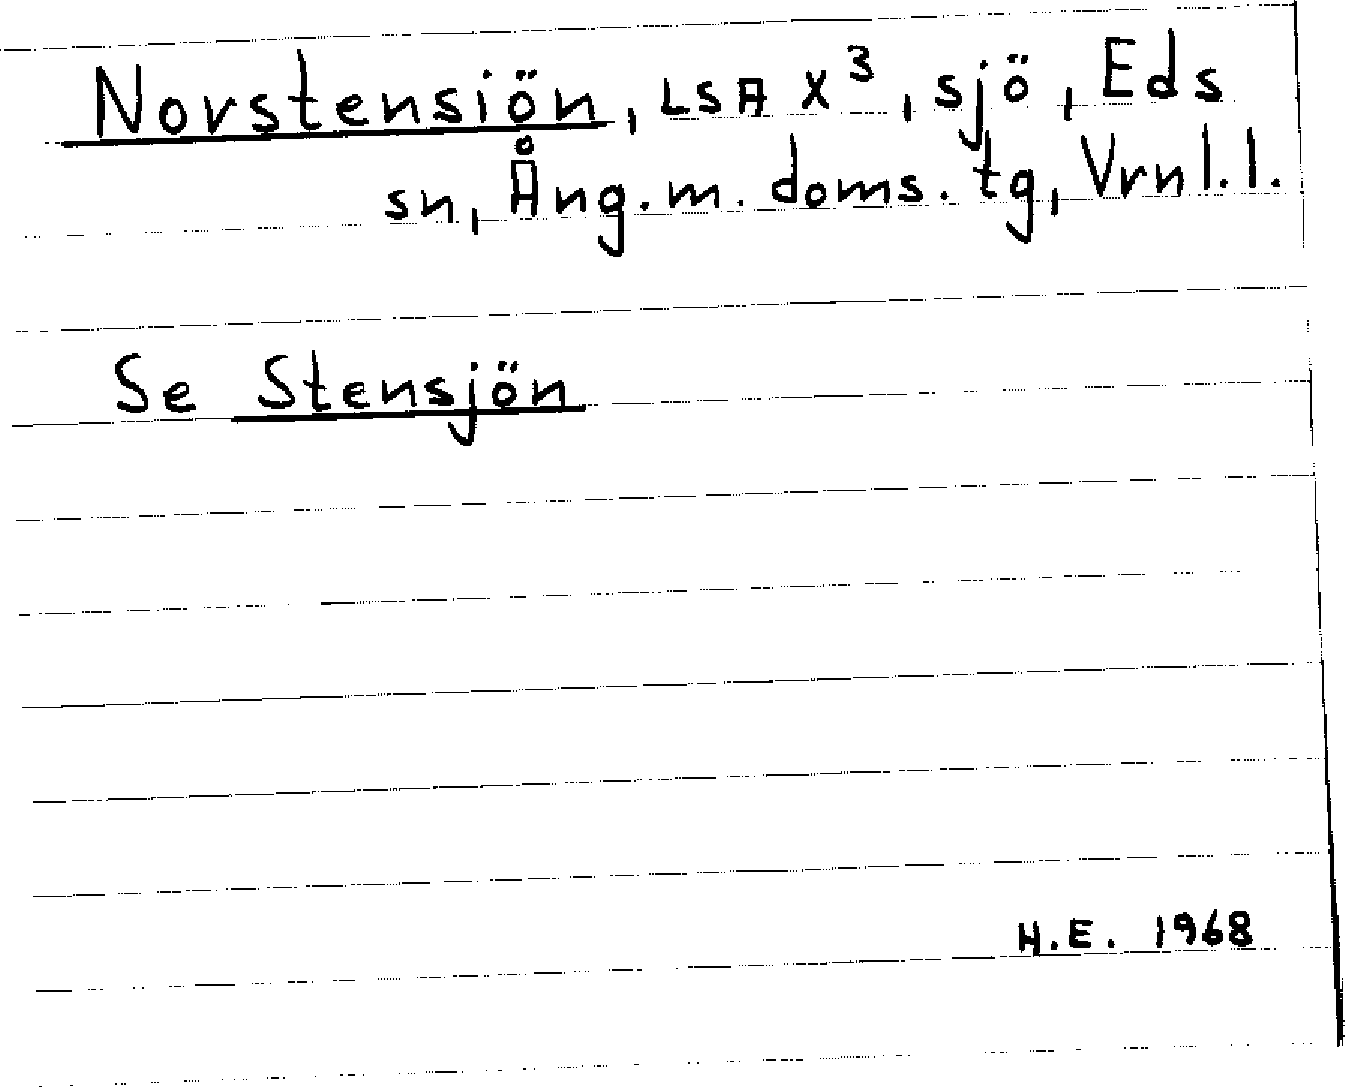 Norstensiön, LSA X³, sjö, Eds
sn, Ång.m. doms. tg, Vrnl.l.
Se Stensjön
H.E. 1968